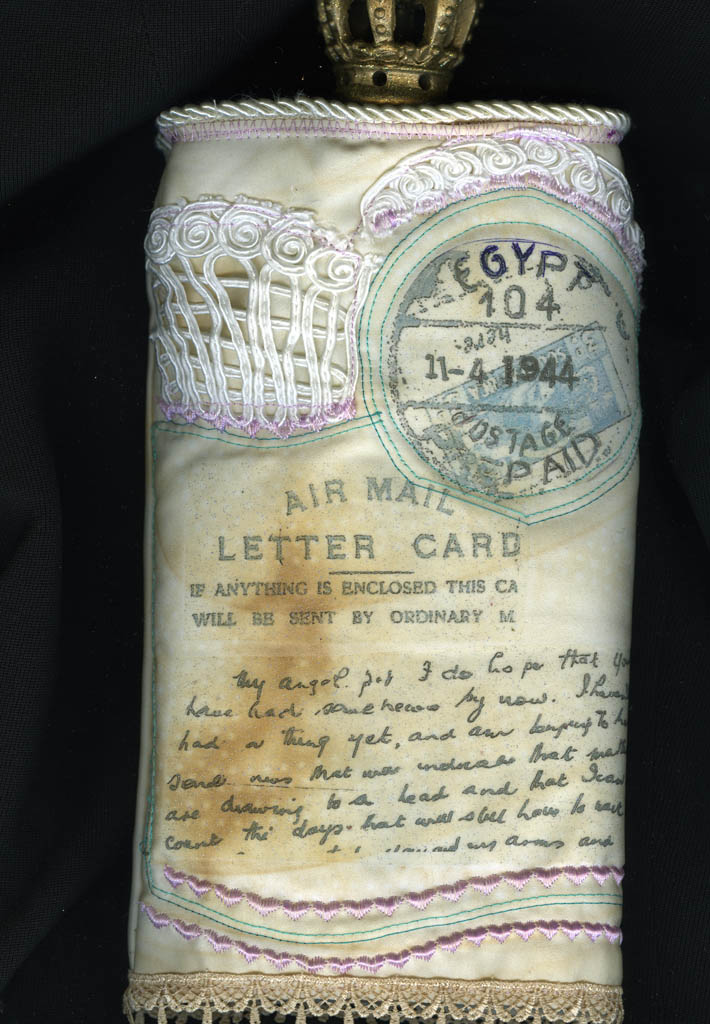 EGYPT
104
11-4 1944
POSTAGE
PREPAID
AIR MAIL
LETTER CARD
IF ANYTHING IS ENCLOSED THIS CA
WILL BE SENT BY ORDINARY M
My angel pet I do hope that you
have had some news by now. I haven
had a thing yet, and am longing to h
send news that will indicate that matte
are drawing to a head and that I can
count the days that will still have to wait
arms and